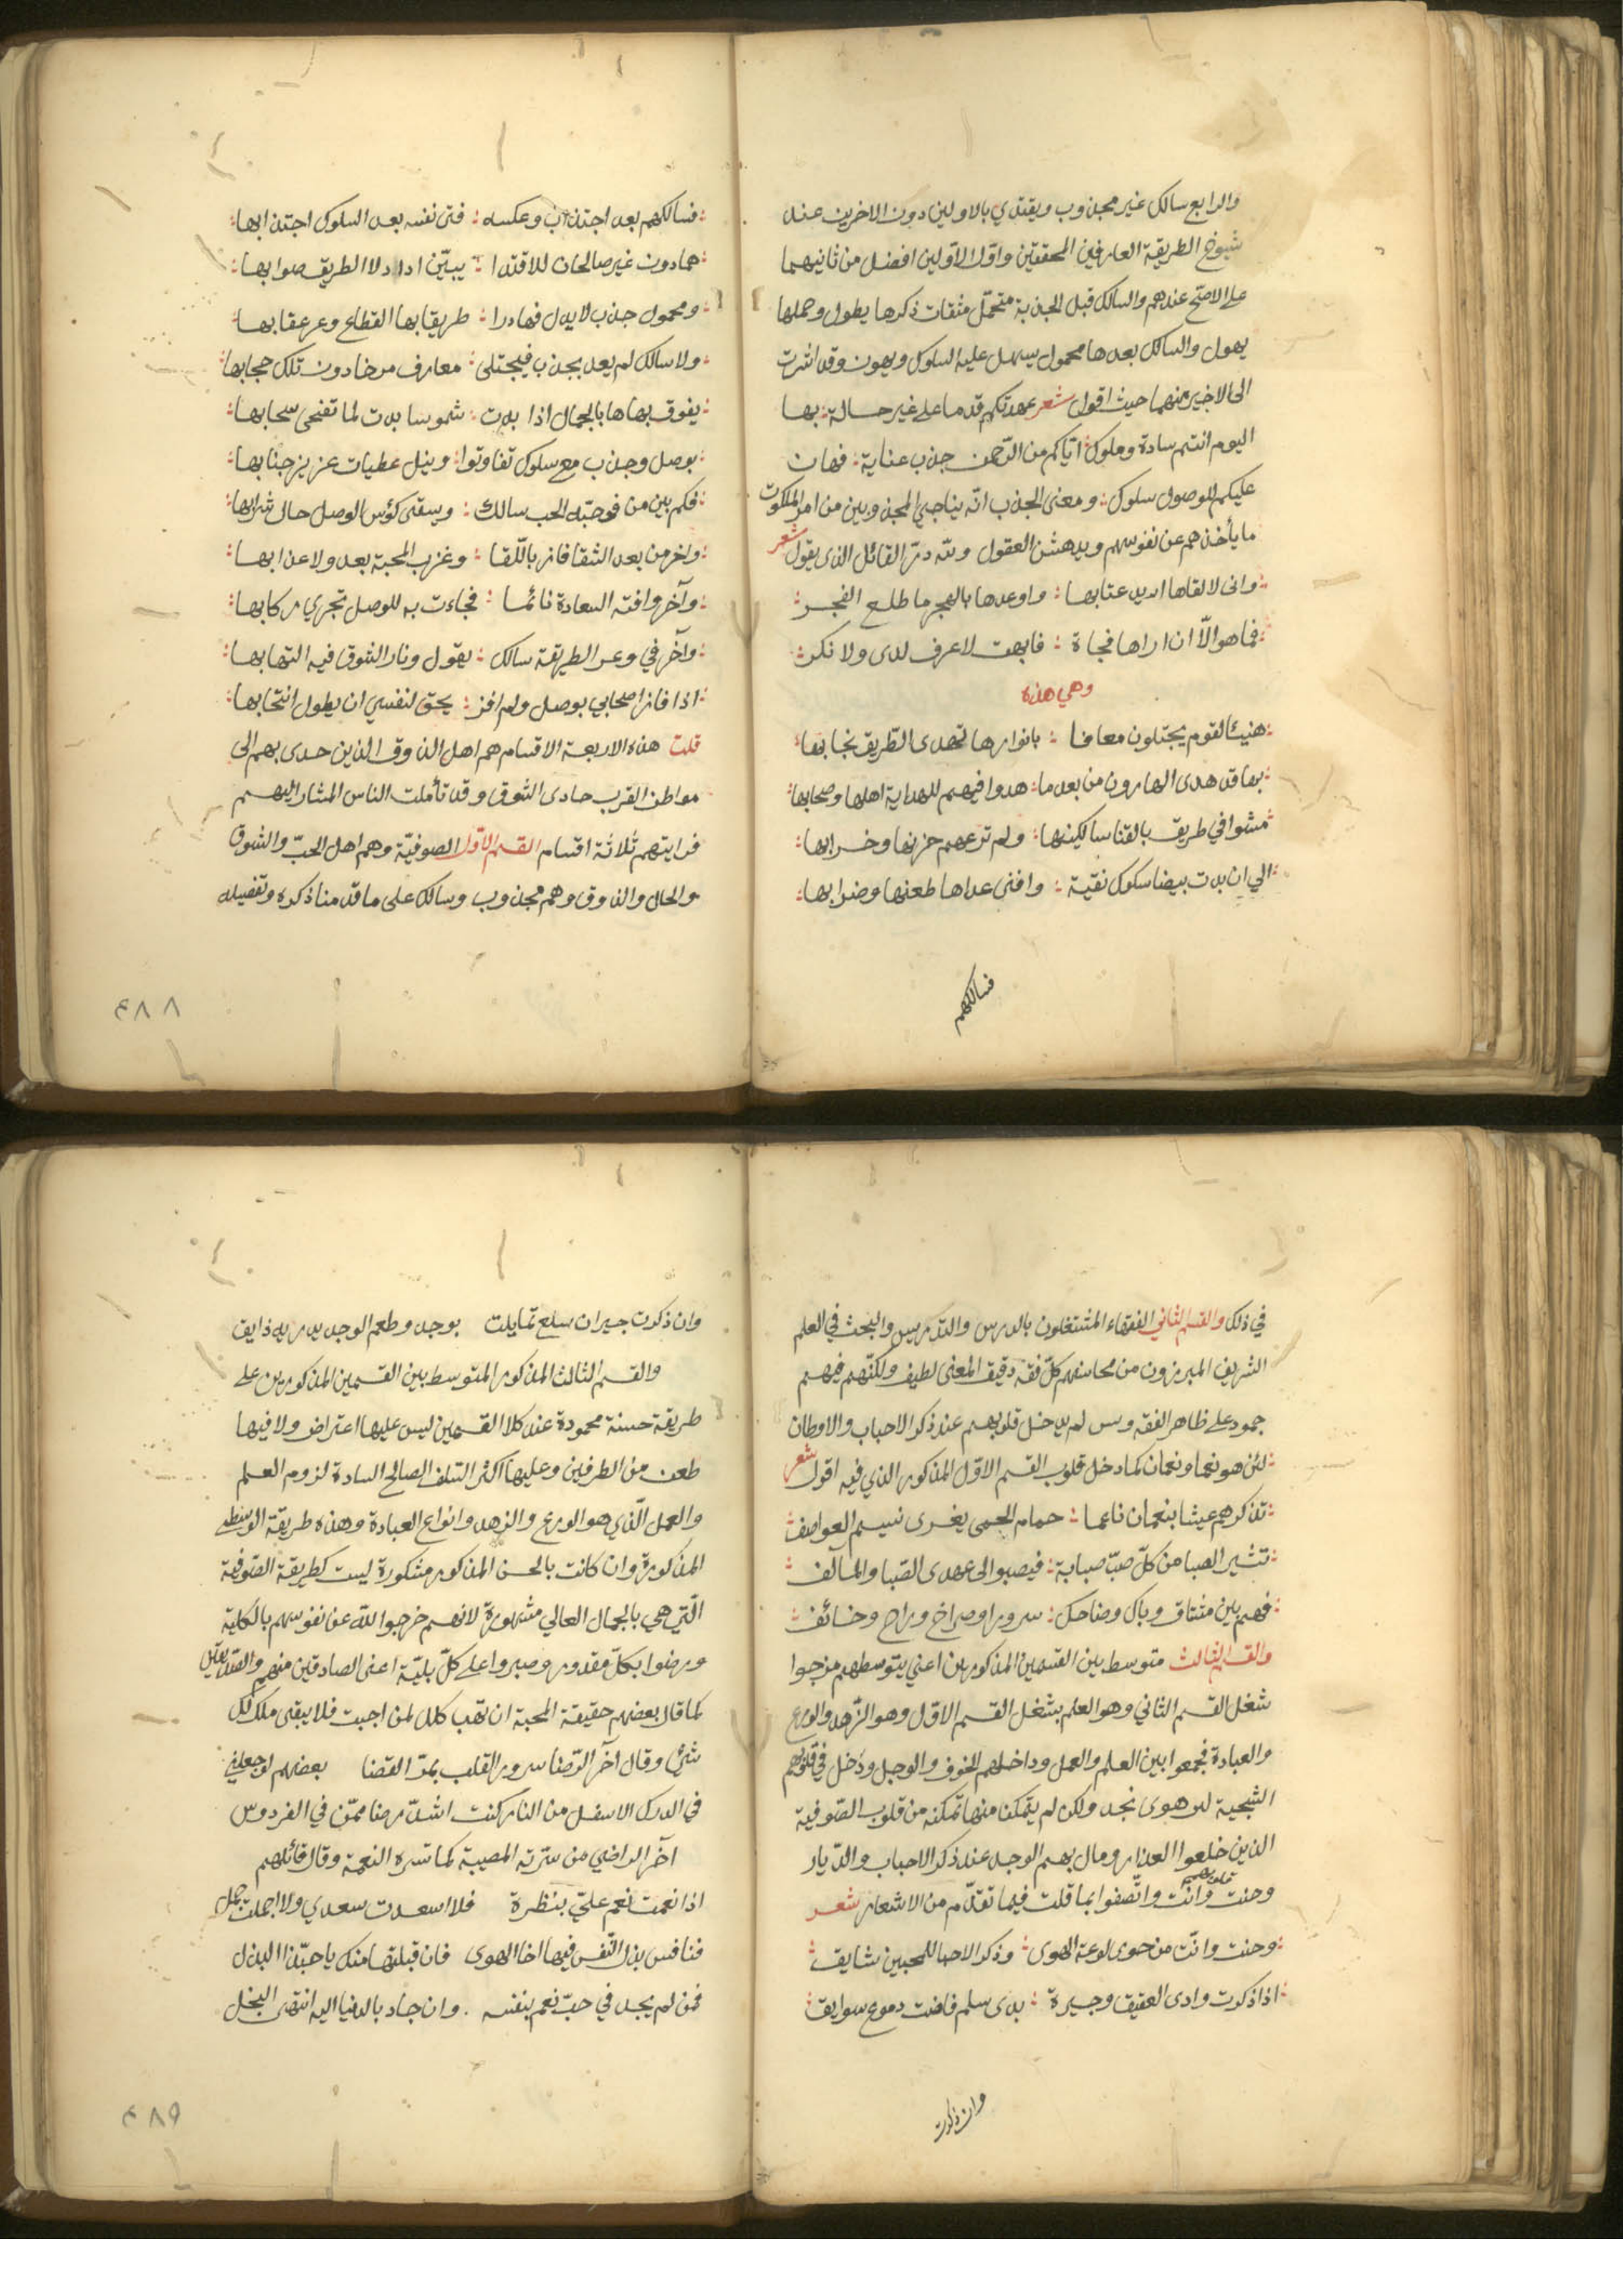 والرابع سالك غير مجذوب ويقتدي بالاولين دون الاخرين عند
شيوخ الطريقة العارفين المحققين واول الاولين افضل من ثانيهما
على الاصح عندهم والسالك قبل الجذبة متحمل مشقات ذكرها يطول وحملها
يهول والسالك بعدها محمول يسهل عليه السلوك ويهون وقد اشرت
الى الاخير منهما حيث اقول شعر عهدتكم قدما على غير حسالة بها
اليوم انتم سادة وملوك اتاكم من الرحمن جذب عناية فهان
عليكم للوصول سلوك ومعنى الجذب انه يناجي المجذوبين من امر الملكوت
ما يأخذهم عن نفوسهم ويدهش العقول ولله در القائل الذى يقول شعر
وانى لالقاها اريد عتابها واوعدها بالهجر ما طلع الفجر
فما هو الا ان اراها فجاة فابهت لا عرف لدى ولا نكر
وهي هذه
هنيئا لقوم يجتلون معارفا بانوارها تهدى الطريق نجابها
بها قد هدى الهادون من بعد ما هدوا فيهم للهداية اهلها وصحابها
مشوا في طريق بالقنا سالكينها ولم ترعهم حزنها وخرابها
الي ان بدت بيضا سكوك نقية وافنى عداها طعنها وضرابها
فسالكهم
فسالكهم بعد اجتذاب وعكسه فتى نفسه بعد السلوك اجتذابها
هما دون غير صالحان للاقتدا يبين ادا دلا الطريق صوابها
ومحمول جذب لا يدل فما درا طريقا بها القطاع وعر عقابها
ولا سالك لم يعد بجذب فيجتلى معارف من خا دون تلك حجابها
يفوق بهاها بالجمال اذا بدت شموسا بدت لما تفنحى سحابها
بوصل وجذب مع سلوك تفاوتوا ونيل عطيات عزيز جنابها
فكم بين من فوحبه الحب سالك ويسقى كؤس الوصل حال شرابها
واخر من بعد الشقا فاز باللقا وغرب المحبة بعد ولا عذابها
وآخر وافته السعادة نائما فجاءت به للوصل تجري ركابها
وآخر في وعر الطريقة سالك يقول ونار الشوق فيه التهابها
اذا فاز اصحابي بوصل ولم افز يحق لنفسي ان يطول انتحابها
قلت هذه الاربعة الاقسام هم اهل الذوق الذين حدى بهم الى
مواطن القرب حادى الشوق وقد تأملت الناس المشار اليهم
فرايتهم ثلاثة اقسام القسم الاول الصوفية وهم اهل الحب والشوق
والحال والذوق وهم مجذوب وسالك على ما قدمنا ذكره وتفصيله
٤٨٨
في ذلك والقسم الثاني الفقهاء المشتغلون بالدرس والتدريس والبحث في العلم
الشريف المبرزون من محاسنهم كل فقه دقيق المعنى لطيف ولكنهم فيهم
جمود على ظاهر الفقه ويبس لم يدخل قلوبهم عند ذكر الاحباب والاوطان
لئن هو نعما ونعمان كما دخل قلوب القسم الاول المذكور الذي فيه اقول شعر
تذكرهم عيشا بنعمان ناعما حمام الحمى يغرى نسيم العواصف
تثير الصبا من كل صب صبابة فيصبو الى عهدى الصبا والمالف
فهم بين مشتاق وباك وضاحك سرورا وصراخ وراج وخائف
والقسم الثالث متوسط بين القسمين المذكورين اعني بتوسطهم مزجوا
شغل القسم الثاني وهو العلم بشغل القسم الاول وهو الزهد والورع
والعبادة فجمعوا بين العلم والعمل وداخلهم الخوف والوجل ودخل في قلوبهم
الشجية لهوى نجد ولكن لم يتمكن منها تمكنه من قلوب الصوفية
الذين خلعوا العذار ومال بهم الوجد عند ذكر الاحباب والديار
وحنت قلوبهم وانت واتصفوا بما قلت فيما تقدم من الاشعار شعر
وحنت وانت من حوى لوعة الهوى وذكر الاحبا للمحبين شايق
اذا ذكرت وادى العقيق وجيرة بذى سلم فاضت دموع سوابق
وان ذكرت
وان ذكرت جيران سلع تمايلت بوجد وطعم الوجد يدريه ذايق
والقسم الثالث المذكور المتوسط بين القسمين المذكورين على
طريقة حسنة محمودة عند كلا القسمين ليس عليها اعتراض ولا فيها
طعن من الطرفين وعليها اكثر السلف الصالح السادة لزوم العلم
والعمل الذي هو الورع والزهد وانواع العبادة وهذه طريقة الوسطى
المذكورة وان كانت بالحسن المذكور مشكورة ليست كطريقة الصوفية
التي هي بالجمال العالي مشهورة لانهم خرجوا لله عن نفوسهم بالكلية
ورضوا بكل مقدور وصبروا على كل بلية اعنى الصادقين منهم والصديقين
كما قال بعضهم حقيقة المحبة ان تهب كلك لمن احببت فلا يبقى ملك لك
شئ وقال آخر الرضا سرور القلب بمر القضا بعضهم لو جعلني
في الدرك الاسفل من النار كنت اشد رضا ممن في الفردوس
آخر الراضي من سرته المصيبة كما تسره النعمة وقال قائلهم
اذا نعمت نعم علي بنظرة فلا اسعدت سعدي ولا اجملت جمل
فنافس ببذل النفس فيها اخا الهوى فان قبلتها منك يا حبذا البذل
فمن لم يجد في حب نعم بنفسه وان جاد بالدنيا اليه انتهى البخل
٤٨٩